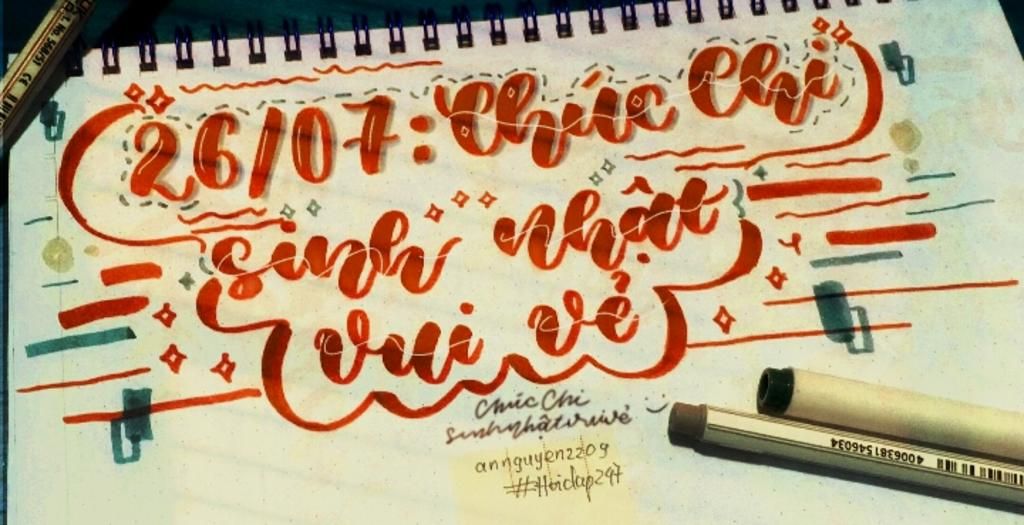 26/07: Chúc Chị
sinh nhật
vui vẻ
Chúc Chị
sinh nhật vui vẻ
annguyen2209
#Hoidap247
4006381546034